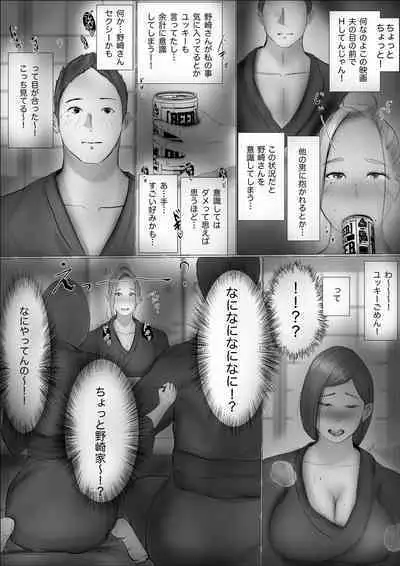 ちょっと
ちょっと！
何なのよこの映画
夫の目の前で
Hしてんじゃん！
他の男に抱かれるとか…
この状況だと
野崎さんを
意識してしまう…
野崎さんが私の事
気に入ってるとか
言ってたし…
ユッキーも
余計に意識
してしまうー！
BEER
意識しては
ダメって思えば
思うほど…
あ…手…
すごい好みかも…
何か…野崎さん
セクシーかも
って目が合った〜
こっち見てる〜！
わ〜〜〜！
ユッキーごめん！
って
！！？？
なになになになに！？
えっ
ちょっと野崎家〜！？
なにやってんの〜！